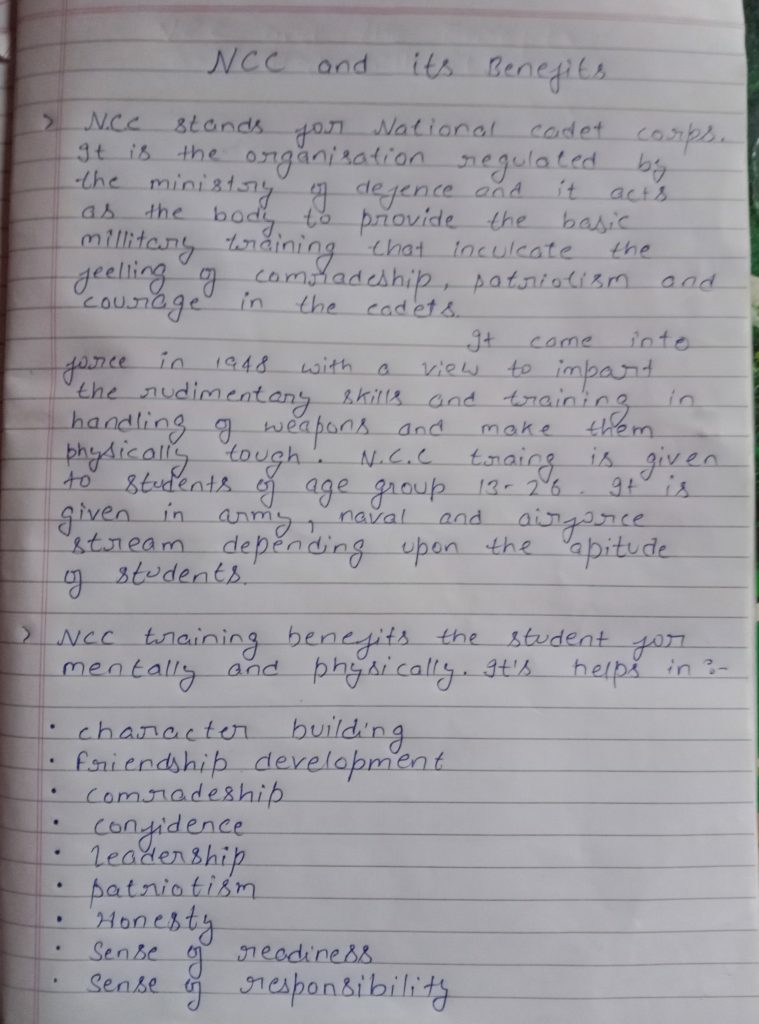 NCC and its Benefits
> N.C.C stands for National cadet corps.
It is the organisation regulated by
the ministry of defence and it acts
as the body to provide the basic
millitary training that inculcate the
feelling of comradeship, patriotism and
courage in the cadets.
It come into
force in 1948 with a view to impart
the rudimentary skills and training in
handling of weapons and make them
physically tough. N.C.C traing is given
to students of age group 13-26. It is
given in army, naval and airforce
stream depending upon the apitude
of students.
> NCC training benefits the student for
mentally and physically. It's helps in :-
• character building
• friendship development
• comradeship
• confidence
• leadership
• patriotism
• Honesty
• Sense of readiness
• Sense of responsibility